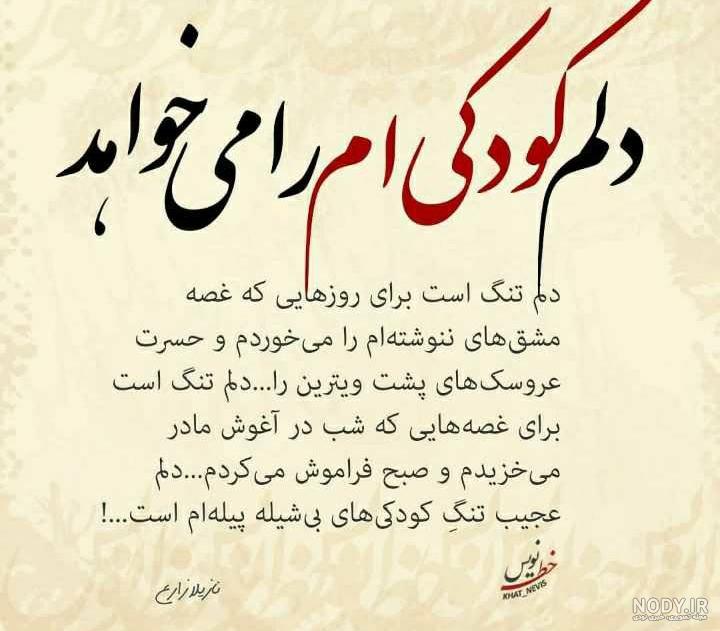 دلم کودکی ام را می خواهد
دلم تنگ است برای روزهایی که غصه
مشق‌های ننوشته‌ام را می‌خوردم و حسرت
عروسک‌های پشت ویترین را...دلم تنگ است
برای غصه‌هایی که شب در آغوش مادر
می‌خزیدم و صبح فراموش می‌کردم...دلم
عجیب تنگِ کودکی‌های بی‌شیله پیله‌ام است...!
خط نویس
KHAT_NEVIS
نازیلا زارع
NODY.IR